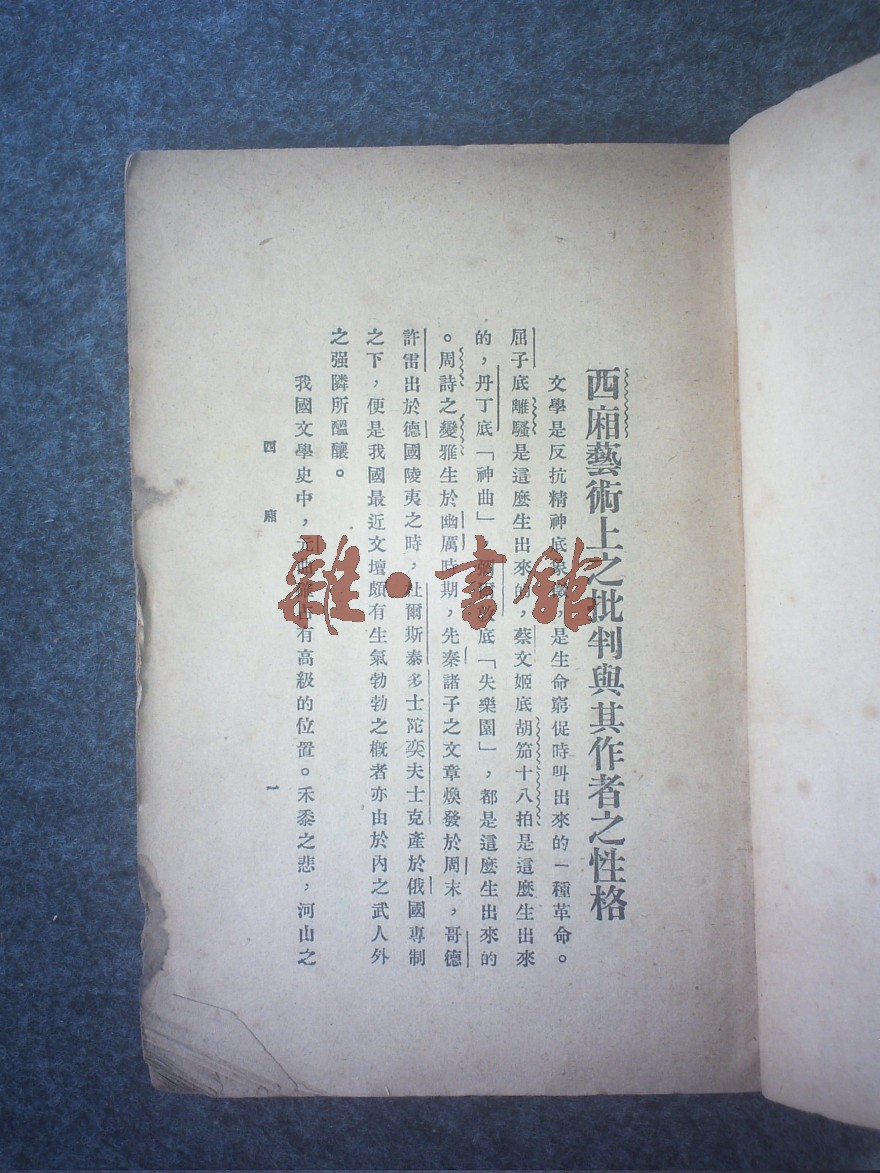 西廂藝術上之批判與其作者之性格
文學是反抗精神底象徵，是生命窮促時叫出來的一種革命。
屈子底離騷是這麼生出來的，蔡文姬底胡笳十八拍是這麼生出來
的，丹丁底「神曲」，彌爾敦底「失樂園」，都是這麼生出來的
。周詩之變雅生於幽厲時期，先秦諸子之文章煥發於周末，哥德
許雷出於德國陵夷之時，杜爾斯泰多士陀奕夫士克產於俄國專制
之下，便是我國最近文壇頗有生氣勃勃之概者亦由於內之武人外
之强隣所醞釀。
我國文學史中，元曲確占有高級的位置。禾黍之悲，河山之
西廂
一
雜·書館